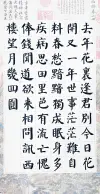 去年花裏逢君別今日花
開又一年世事茫茫難自
料春愁黯黯獨成眠身多
疾病思田里邑有流亡愧
俸錢聞道欲來相問訊西
樓望月幾回圓